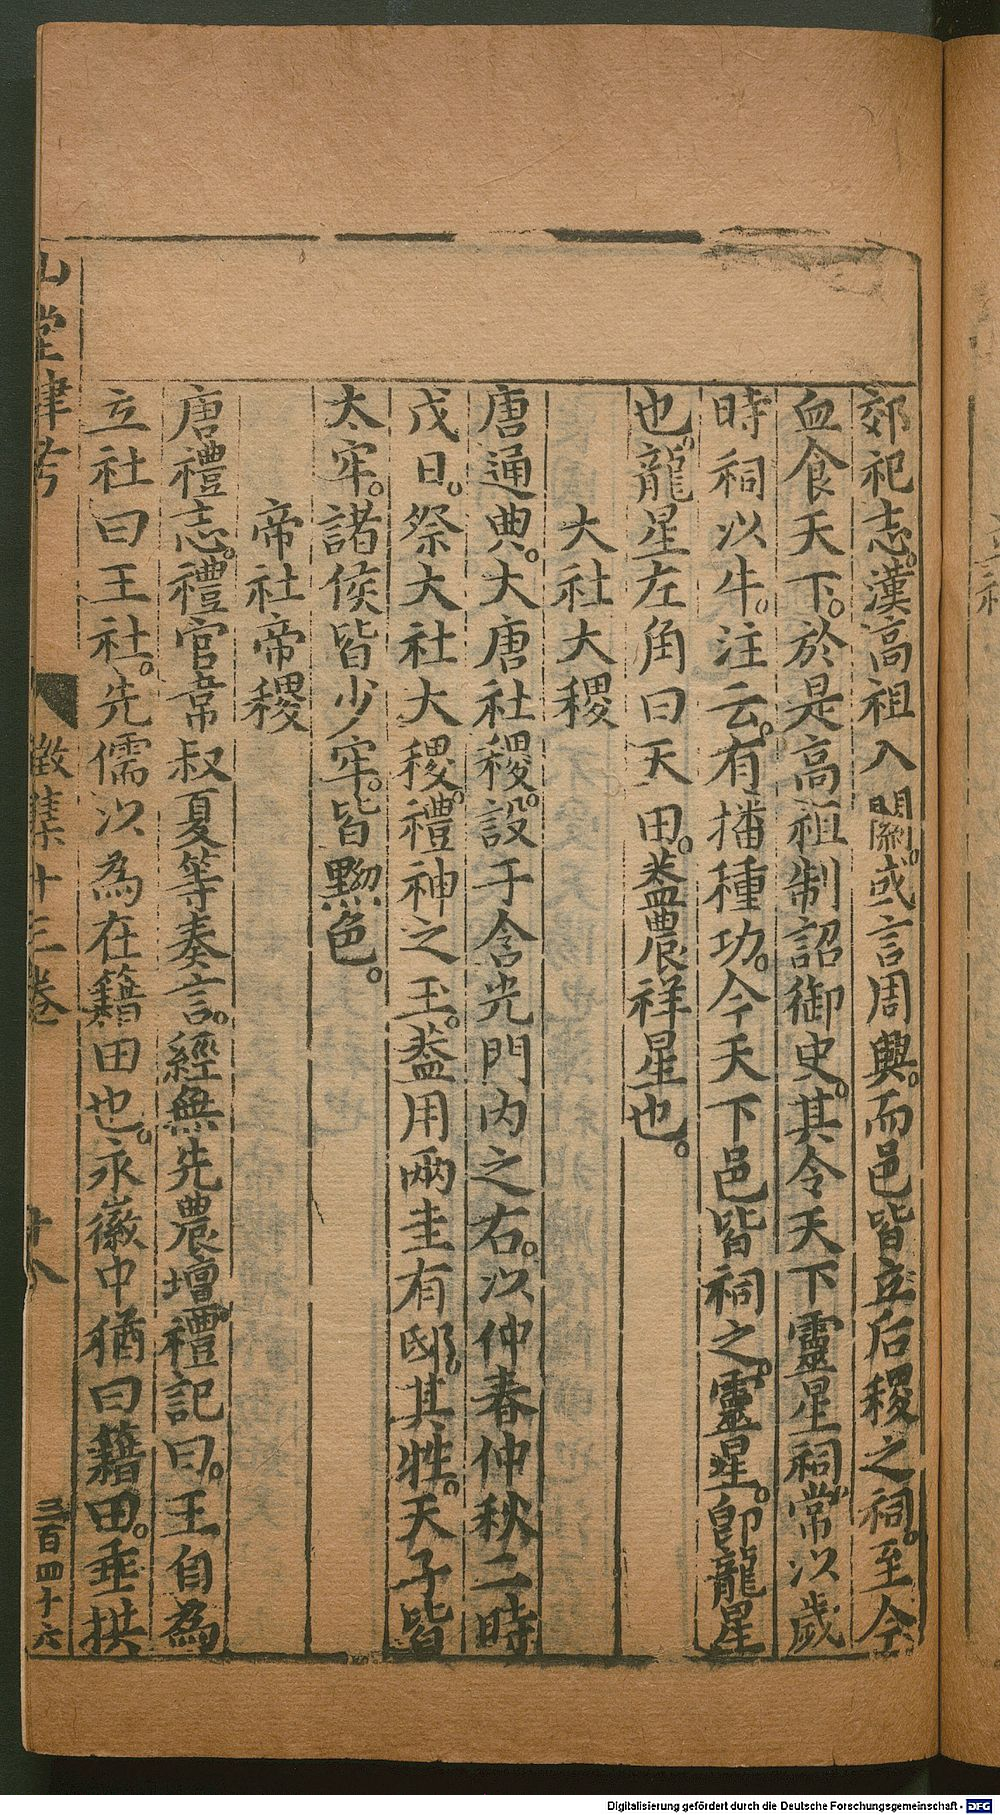 郊祀志。漢高祖入關。或言周興。而邑皆立后稷之祠。至今
血食天下。於是高祖制詔御史。其令天下靈星祠。常以歲
時祠以牛。注云。有播種功。今天下邑皆祠之。靈星。即龍星
也。龍星左角曰天田。葢農祥星也。
大社大稷
唐通典。大唐社稷。設于含光門内之右。以仲春仲秋二時
戊日。祭大社大稷。禮神之玉。葢用兩圭有邸。其牲。天子皆
太牢。諸侯皆少牢。皆黝色。
帝社帝稷
唐禮志。禮官韋叔夏等奏言。經無先農壇。禮記曰。王自為
立社曰王社。先儒以為在籍田也。永徽中猶曰籍田。垂拱
山堂肆考
徵集十三卷
廿八
三百四十六
Digitalisierung gefördert durch die Deutsche Forschungsgemeinschaft - DFG